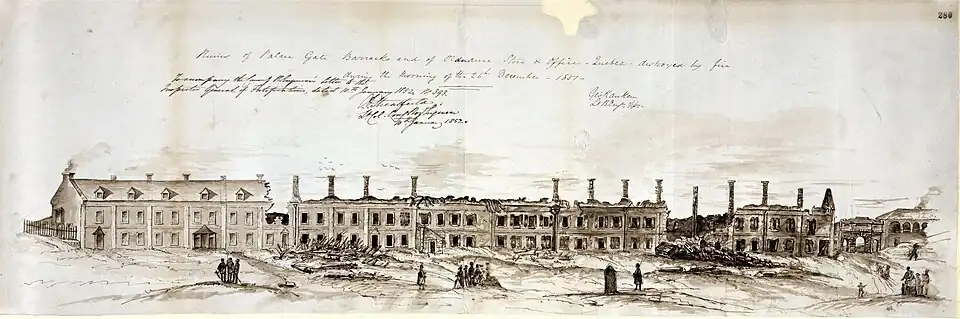 286
Ruins of Palace Gate Barracks and of Ordnance Store & Office - Quebec - destroyed by fire
during the morning of the 26th December - 1851 -
To accompany the Comg Rl Engineer's letter to the
Inspector General of Fortifications, dated 14th January 1852, No
Lt Col. Comg Rl Engineer
14th January 1852.
Geo Ranken
Lt Rl Engrs